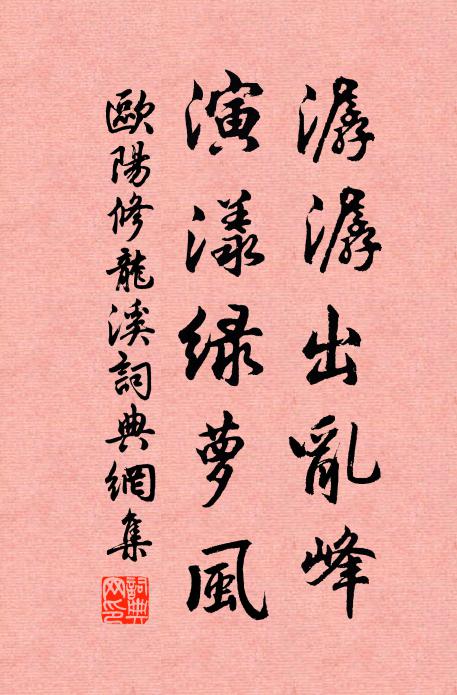 潺潺出亂峰
演漾綠蘿風
歐陽修龍溪詞典網集
詞典網印